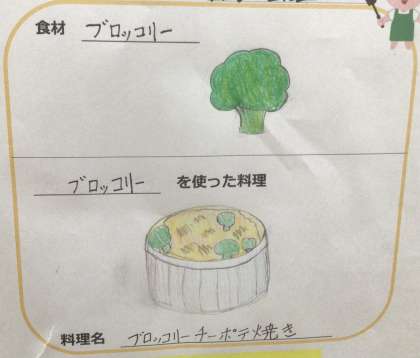 食材 ブロッコリー
ブロッコリー を使った料理
料理名 ブロッコリーチーポテ焼き